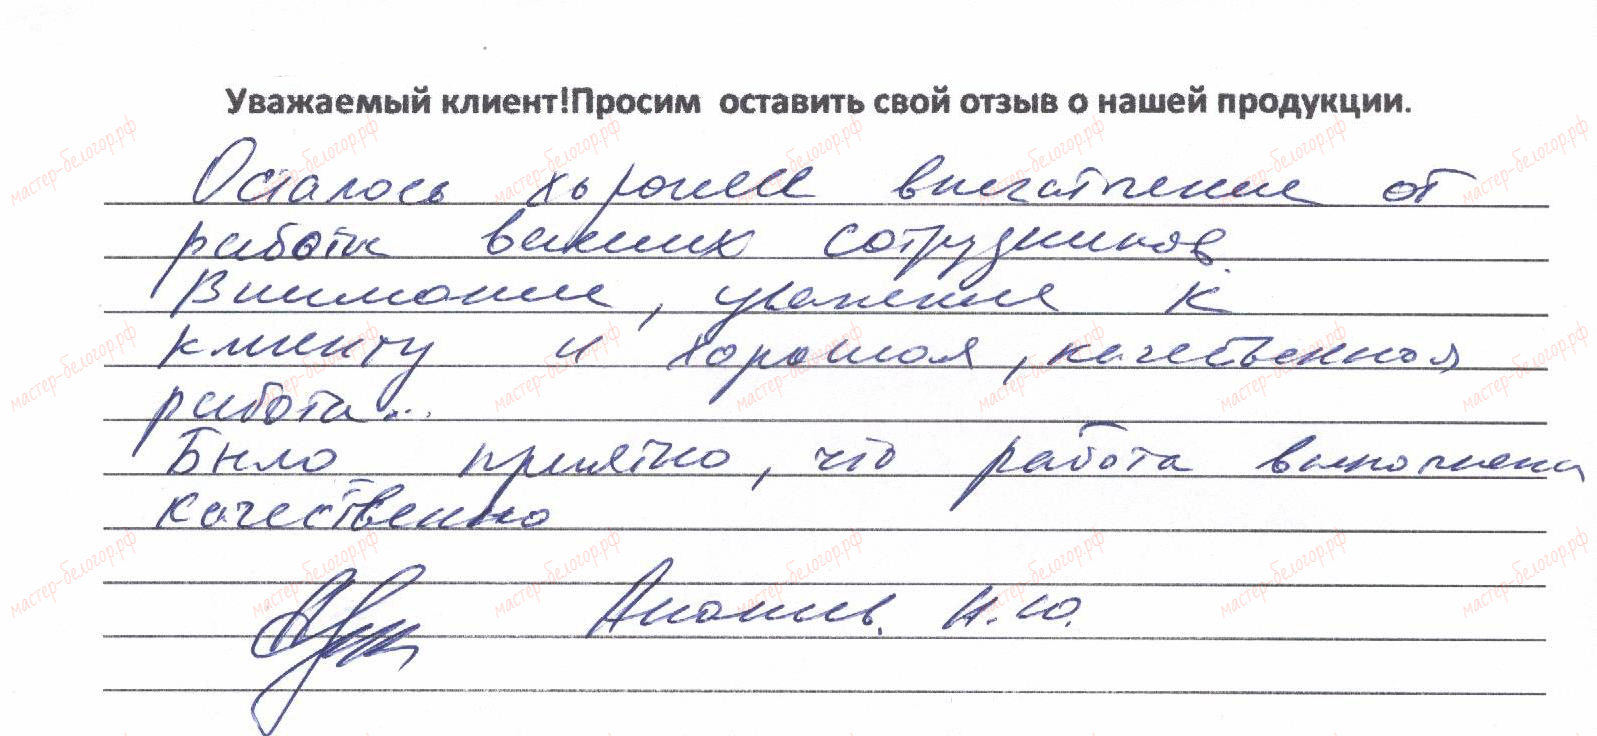 Уважаемый клиент!Просим оставить свой отзыв о нашей продукции.
Осталось хорошее впечатление от
работы ваших сотрудников.
Внимание, уважение к
клиенту и хорошая, качественная
работа...
Было приятно, что работа выполнена
качественно
Н.Ю.
мастер-белогор.рф